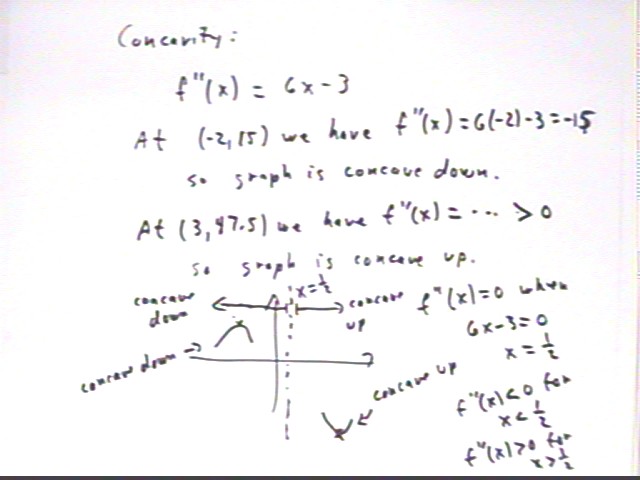 Concavity:
f"(x) = 6x-3
At (-2,15) we have f"(x)=6(-2)-3=-15
so graph is concave down.
At (3,47.5) we have f"(x)= ... > 0
so graph is concave up.
x=½
concave down
concave up
f"(x)=0 when
6x-3=0
x=½
concave down →
concave up
f"(x)<0 for
x<½
f"(x)>0 for
x>½